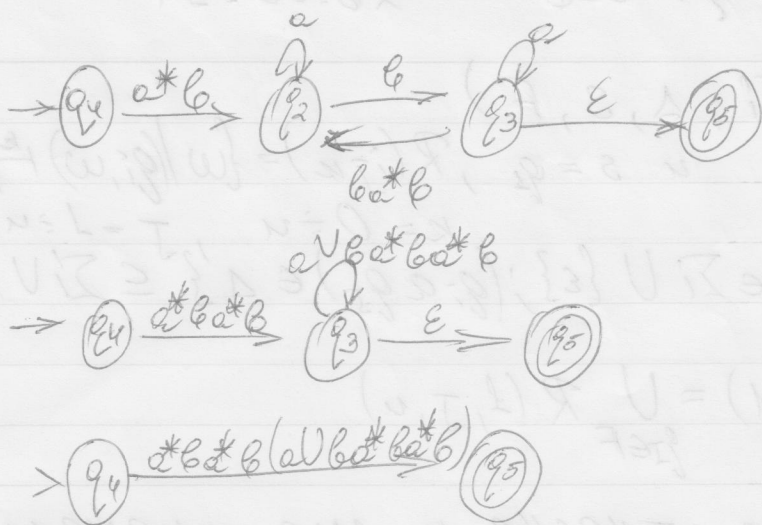 a a
q4 a*b q2 b q3 ε q5
ba*b
a∪ba*ba*b
q4 a*ba*b q3 ε q5
q4 a*ba*b(a∪ba*ba*b) q5